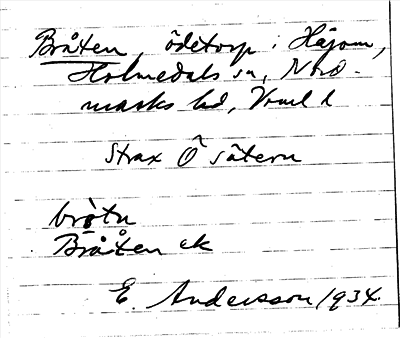 Bråten, ödetorp i Håjom,
Holmedals sn, Nord-
marks hd, Vrml l
Strax Ö sätern
bròtn
Bråten ek
E. Andersson 1934.